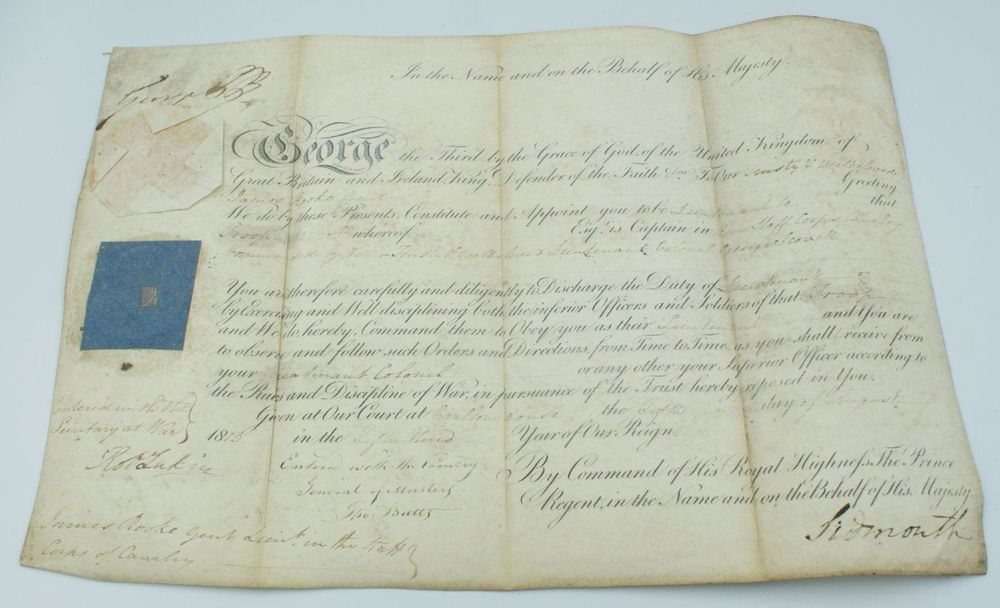 George PR
In the Name and on the Behalf of His Majesty.
George the Third by the Grace of God, of the United Kingdom of
Great Britain and Ireland, King, Defender of the Faith &c. To Our Trusty & Wellbeloved
James Rooke Gent Greeting
We do by these Presents, Constitute and Appoint you to be Lieutenant to that
Troop whereof Esqr. is Captain in Our Staff Corps of Cavalry
commanded by Our Trusty & Wellbeloved Lieutenant Colonel George Scovell
You are therefore carefully and diligently to Discharge the Duty of Lieutenant
by Exercising and Well disciplining both the inferior Officers and Soldiers of that Troop
and We do hereby Command them to Obey you as their Lieutenant and You are
to observe and follow such Orders and Directions, from Time to Time, as you shall receive from
your Lieutenant Colonel or any other your Superior Officer according to
the Rules and Discipline of War, in pursuance of the Trust hereby reposed in You.
Given at Our Court at Carlton House the day of August
1815 in the Year of Our Reign.
By Command of His Royal Highness The Prince
Regent, in the Name and on the Behalf of His Majesty
Sidmouth
Entered with the
Secretary at War
Entered with the
General of Musters
James Rooke Gent Lieut. in the Staff
Corps of Cavalry